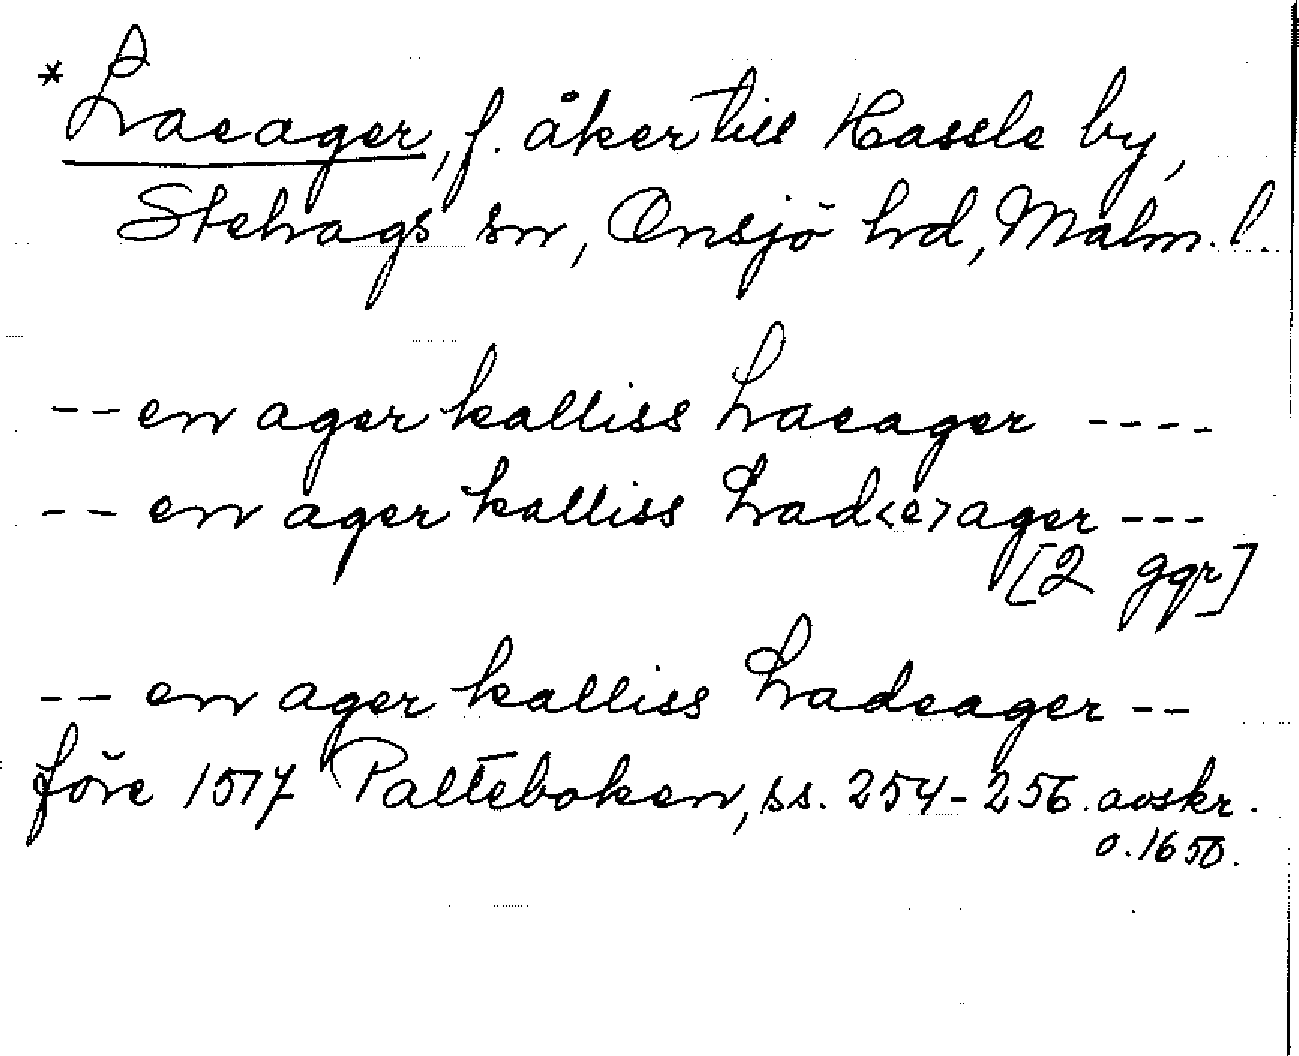 *Laeager, f. åker till Hassle by,
Stehags sn, Onsjö hd, Malm. l.
-- en ager kalliss Laeager ----
-- en ager kalliss Lad<e>ager ---
[2 ggr]
-- en ager kalliss Ladeager --
före 1517 Palteboken, ss. 254-256. avskr.
o. 1650.